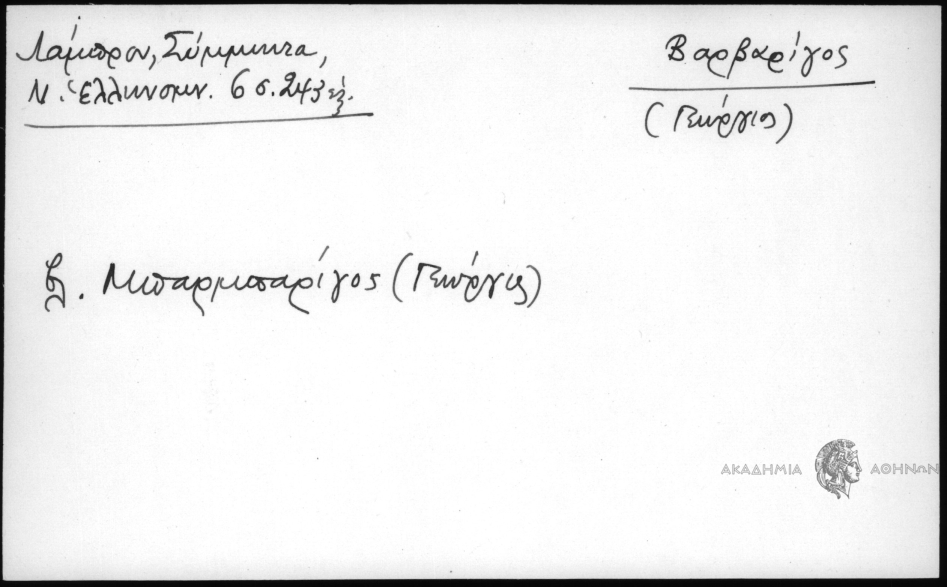 Λάμπρου, Σύμμικτα,
Ν. Ἑλληνομν. 6 σ. 243 ἑξ.
Βαρβαρίγος
(Γεώργιος)
βλ. Μπαρμπαρίγος (Γεώργιος)
ΑΚΑΔΗΜΙΑ ΑΘΗΝΩΝ